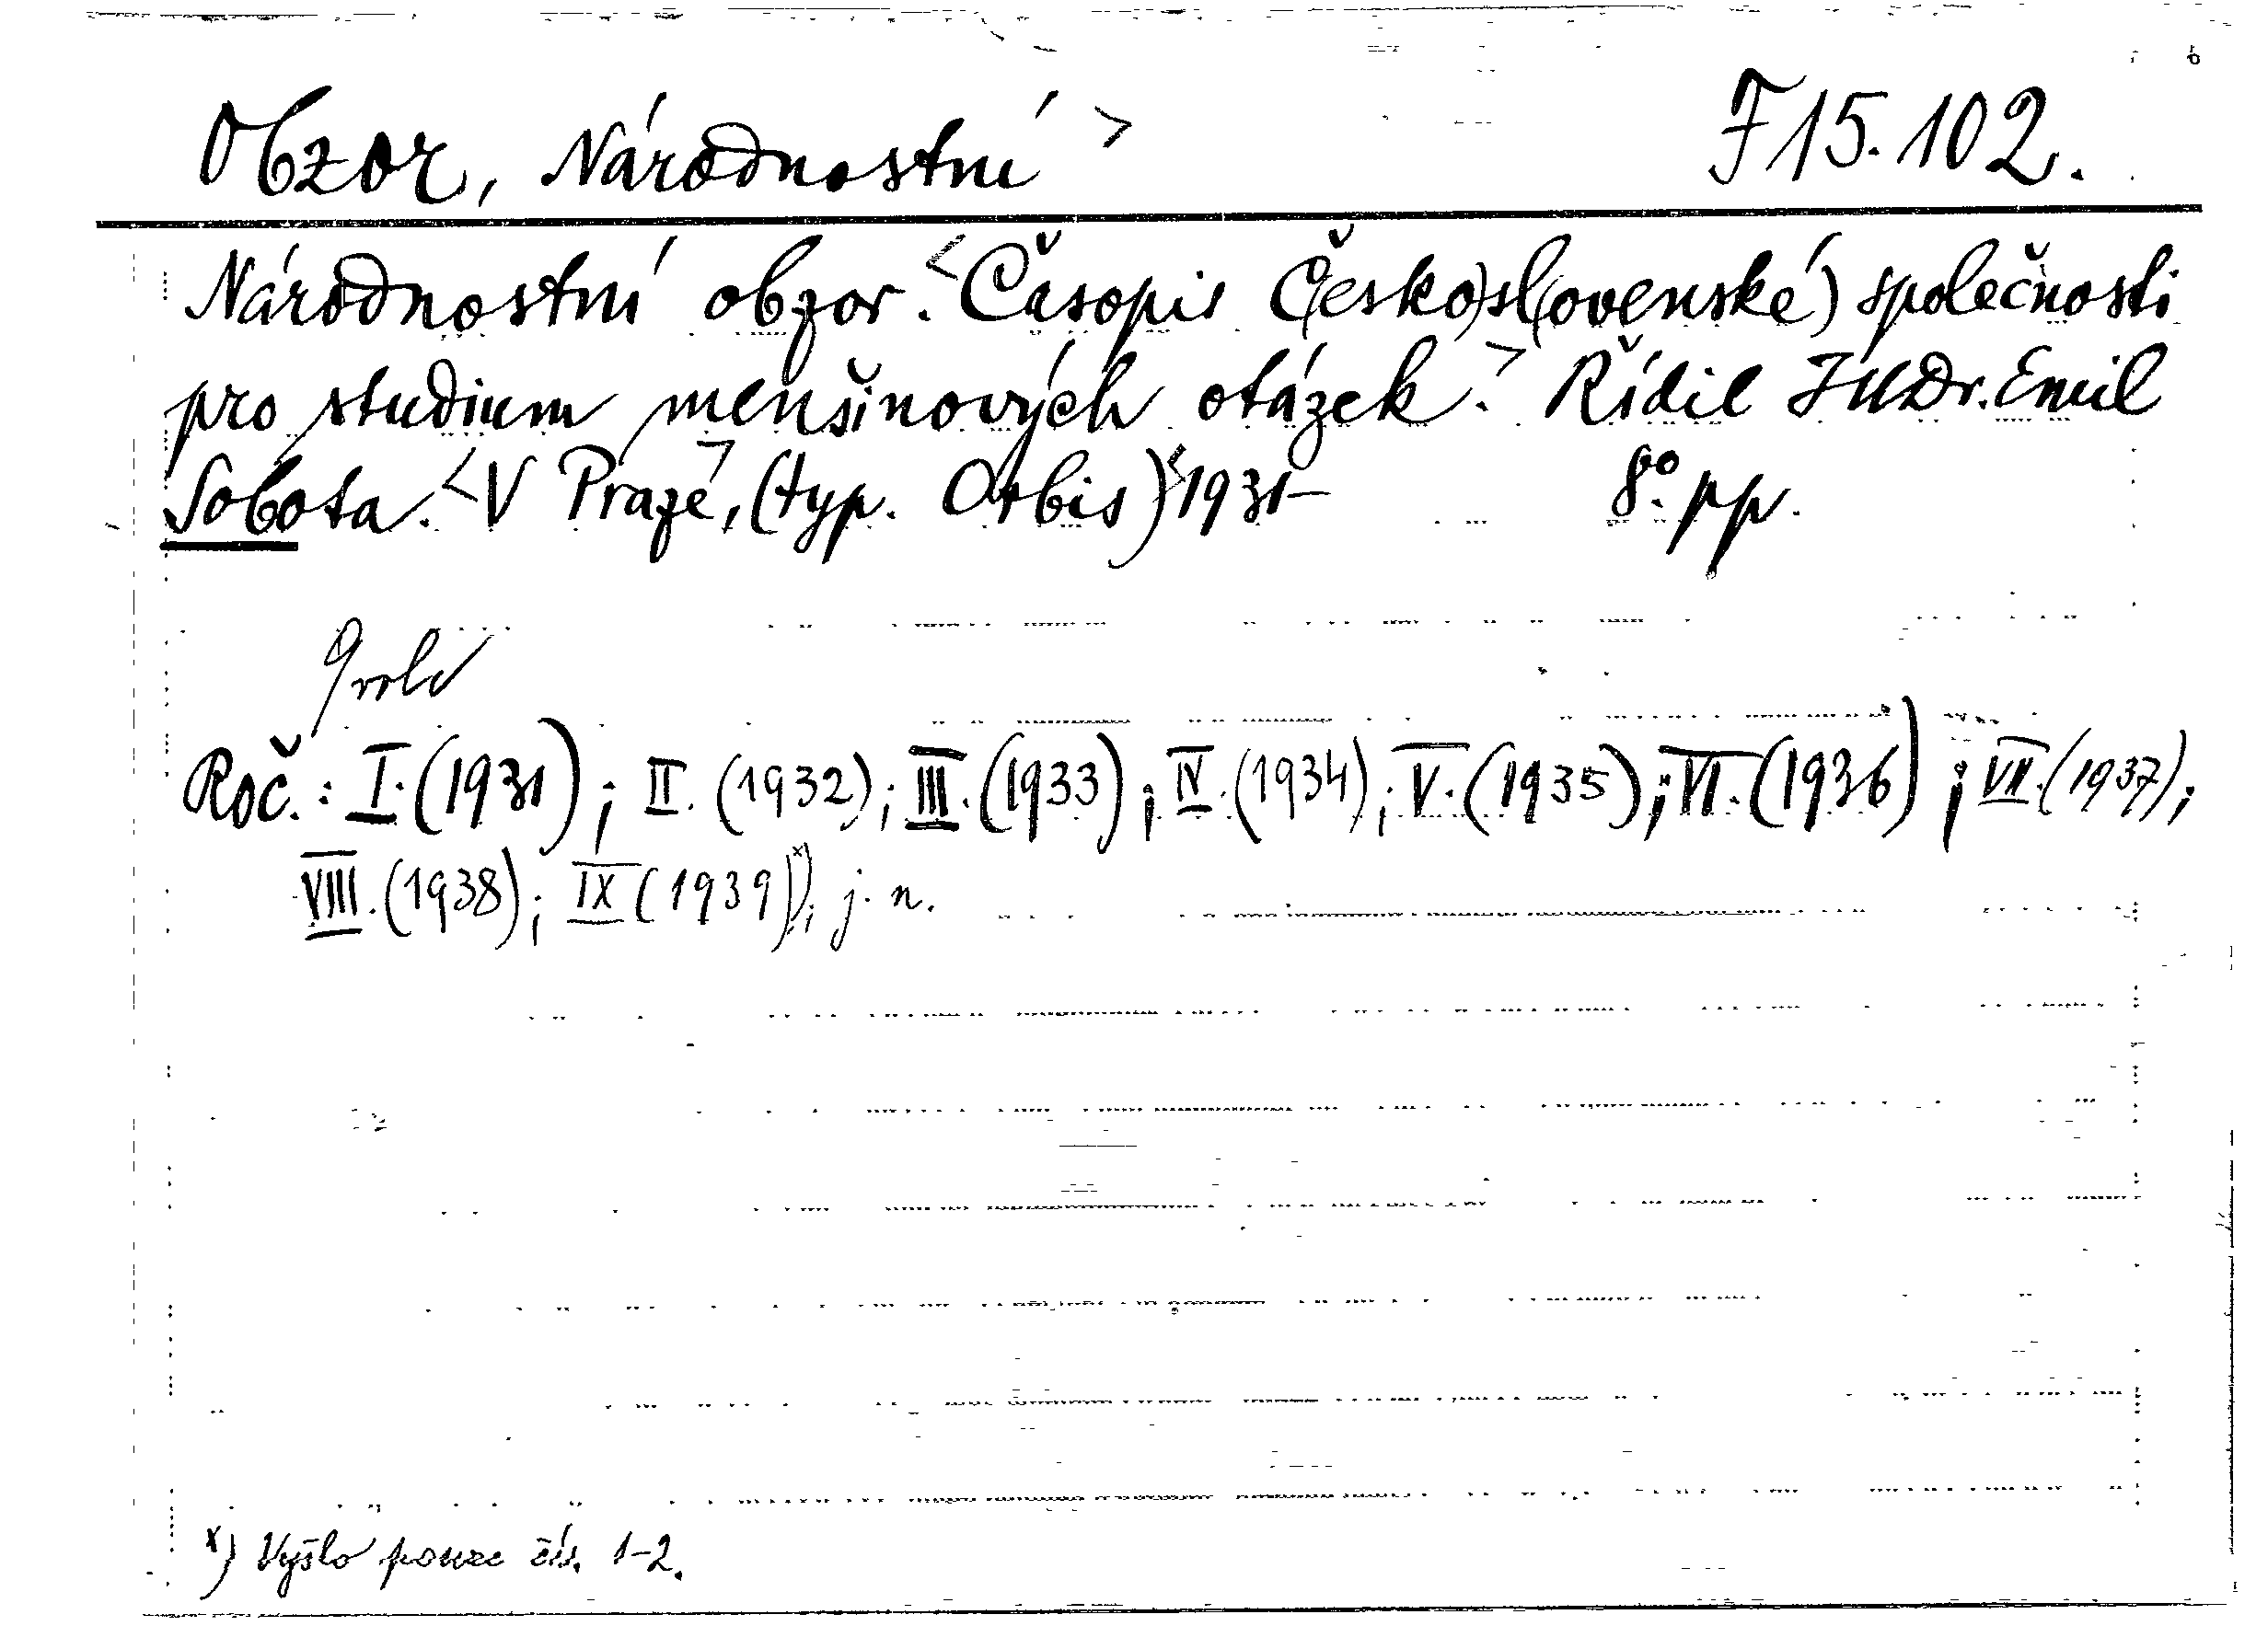 Obzor, Národnostní > F 15.102.
Národnostní obzor. <Časopis Č(esko)sl(ovenské) společnosti
pro studium menšinových otázek.> Řídil JUDr. Emil
Sobota. <V Praze>, (typ. Orbis) <1931– 8°. pp.
Roč.: I. (1931); II. (1932); III. (1933); IV. (1934); V. (1935); VI. (1936); VII. (1937);
VIII. (1938); IX (1939)x); j. n.
x) Vyšlo pouze čís. 1-2.